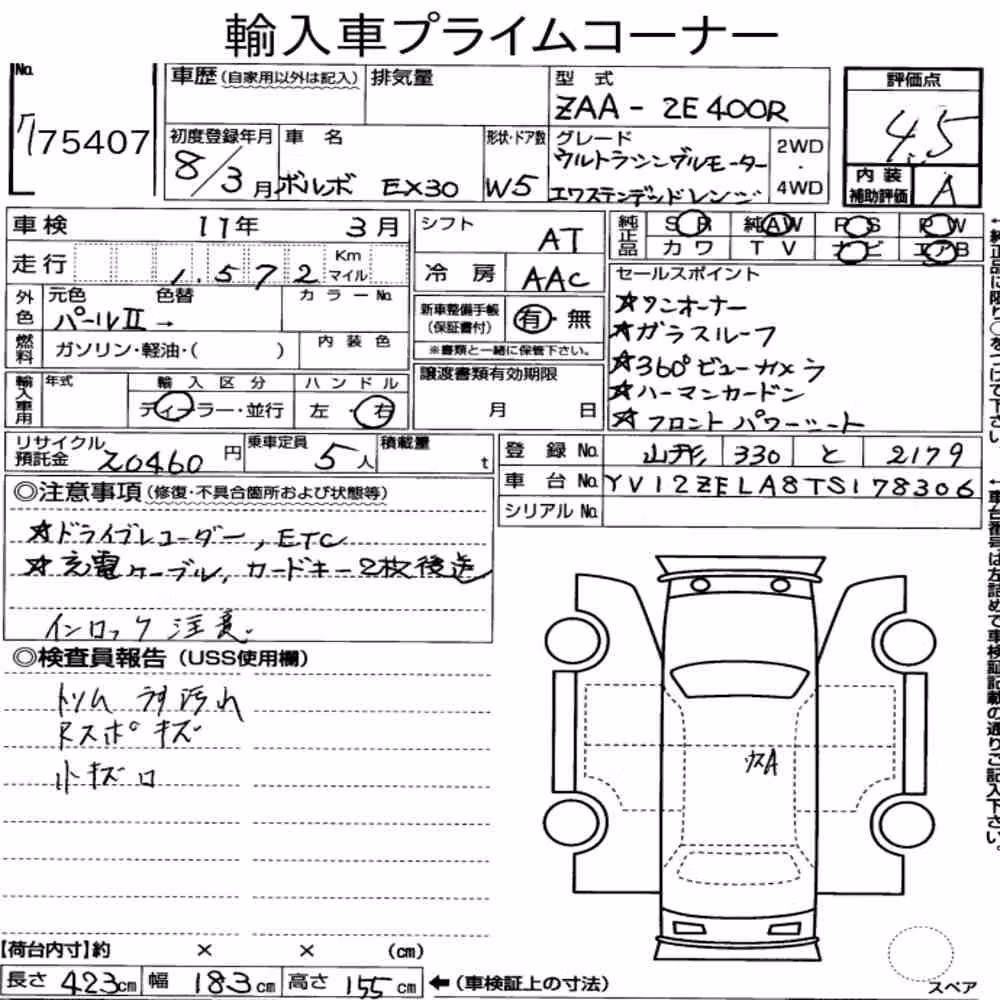 輸入車プライムコーナー
No.
775407
車歴(自家用以外は記入) 排気量
型式
ZAA - ZE400R
評価点
4.5
内装補助評価 A
初度登録年月
8/3月
車名
ボルボ EX30
形状・ドア数
W5
グレード
ウルトラシングルモーター
エクステンデッドレンジ
2WD
・
4WD
車検 11年 3月
走行 1,572 Km マイル
外色 元色 色替 カラーNo.
パールII →
燃料 ガソリン・軽油・( ) 内装色
輸入車用 年式 輸入区分 ハンドル
ディーラー・並行 左・右
シフト AT
冷房 AAC
新車整備手帳(保証書付) 有・無
※書類と一緒に保管下さい。
譲渡書類有効期限
月 日
純正品 SR 純AW PS PW
カワ TV ナビ エアB
セールスポイント
☆ワンオーナー
☆ガラスルーフ
☆360°ビューカメラ
☆ハーマンカードン
☆フロントパワーシート
←純正品に限り○をつけて下さい。
リサイクル預託金 20460円 乗車定員 5人 積載量 t
登録No. 山形 330 と 2179
車台No. YV12ZELA8TS178306
シリアルNo.
◎注意事項(修復・不具合箇所および状態等)
☆ドライブレコーダー, ETC
☆充電ケーブル, カードキー2枚後送
インロック注意
←車台番号は左詰めで車検証記載の通りご記入下さい。
◎検査員報告(USS使用欄)
トリム ラゲ汚れ
Rスポ キズ
小キズ
ガラスA
【荷台内寸】約 × × (cm)
長さ 423cm 幅 183cm 高さ 155cm ←(車検証上の寸法)
スペア